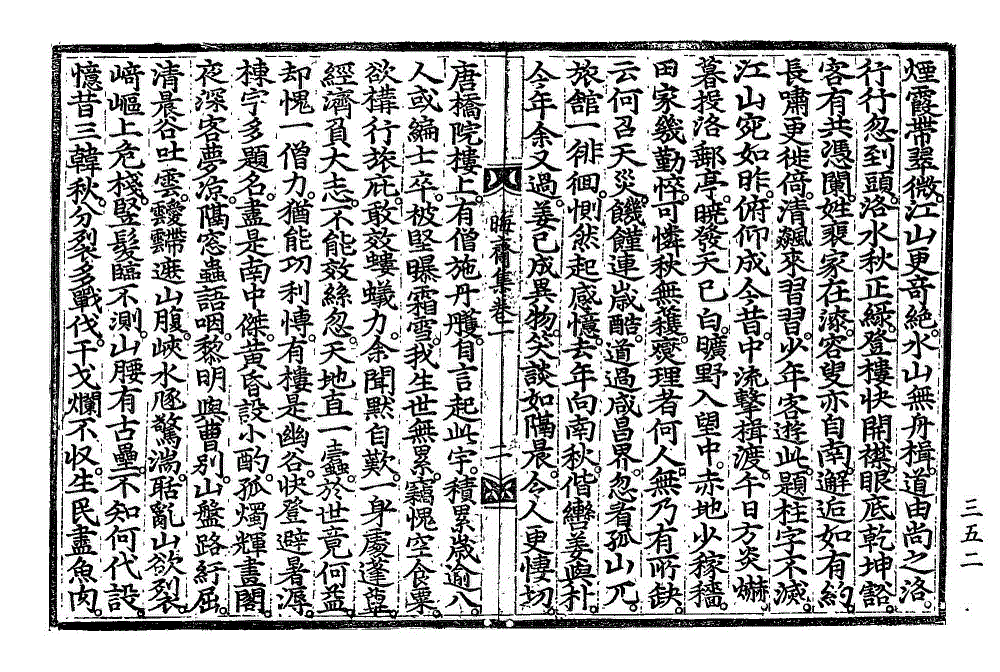 煙霞帶翠微江山更奇絶水山無舟楫道由尚之洛
行行忽到頭洛水秋正綠登樓快開襟眼底乾坤豁
客有共憑闌姓裵家在漆容叟亦自南邂逅如有約
長嘯更徙倚清飆來習習少年客遊此題柱字不滅
江山宛如昨俯仰成今昔中流擊楫渡午日方炎爀
暮投洛郵亭曉發天已白曠野入望中赤地少稼穡
田家幾勤悴可憐秋無穫燮理者何人無乃有所缺
云何召天災饑饉連歲酷道過咸昌界忽看孤山兀
旅館一徘徊惻然起感憶去年向南秋偕轡姜與朴
今年余又過姜已成異物笑談如隔晨令人更悽切
晦齋集卷一
二
唐橋院樓上有僧施丹雘自言起此宇積累歲逾八
人或編士卒被堅曝霜雪我生世無累竊愧空食粟
欲構行旅庇敢效螻蟻力余聞默自歎一身處蓬蓽
經濟負大志不能效絲忽天地直一蠹於世竟何益
却愧一僧力猶能功利博有樓是幽谷快登避暑溽
棟宇多題名盡是南中傑黃昏設小酌孤燭輝畫閣
夜深客夢凉隔窓蟲語咽黎明與曹別山盤路紆屈
清晨谷吐雲靉靆遮山腹峽水豗驚湍聒亂山欲裂
﨑嶇上危棧竪髮臨不測山腰有古壘不知何代設
憶昔三韓秋分裂多戰伐干戈爛不収生民盡魚肉
三五二